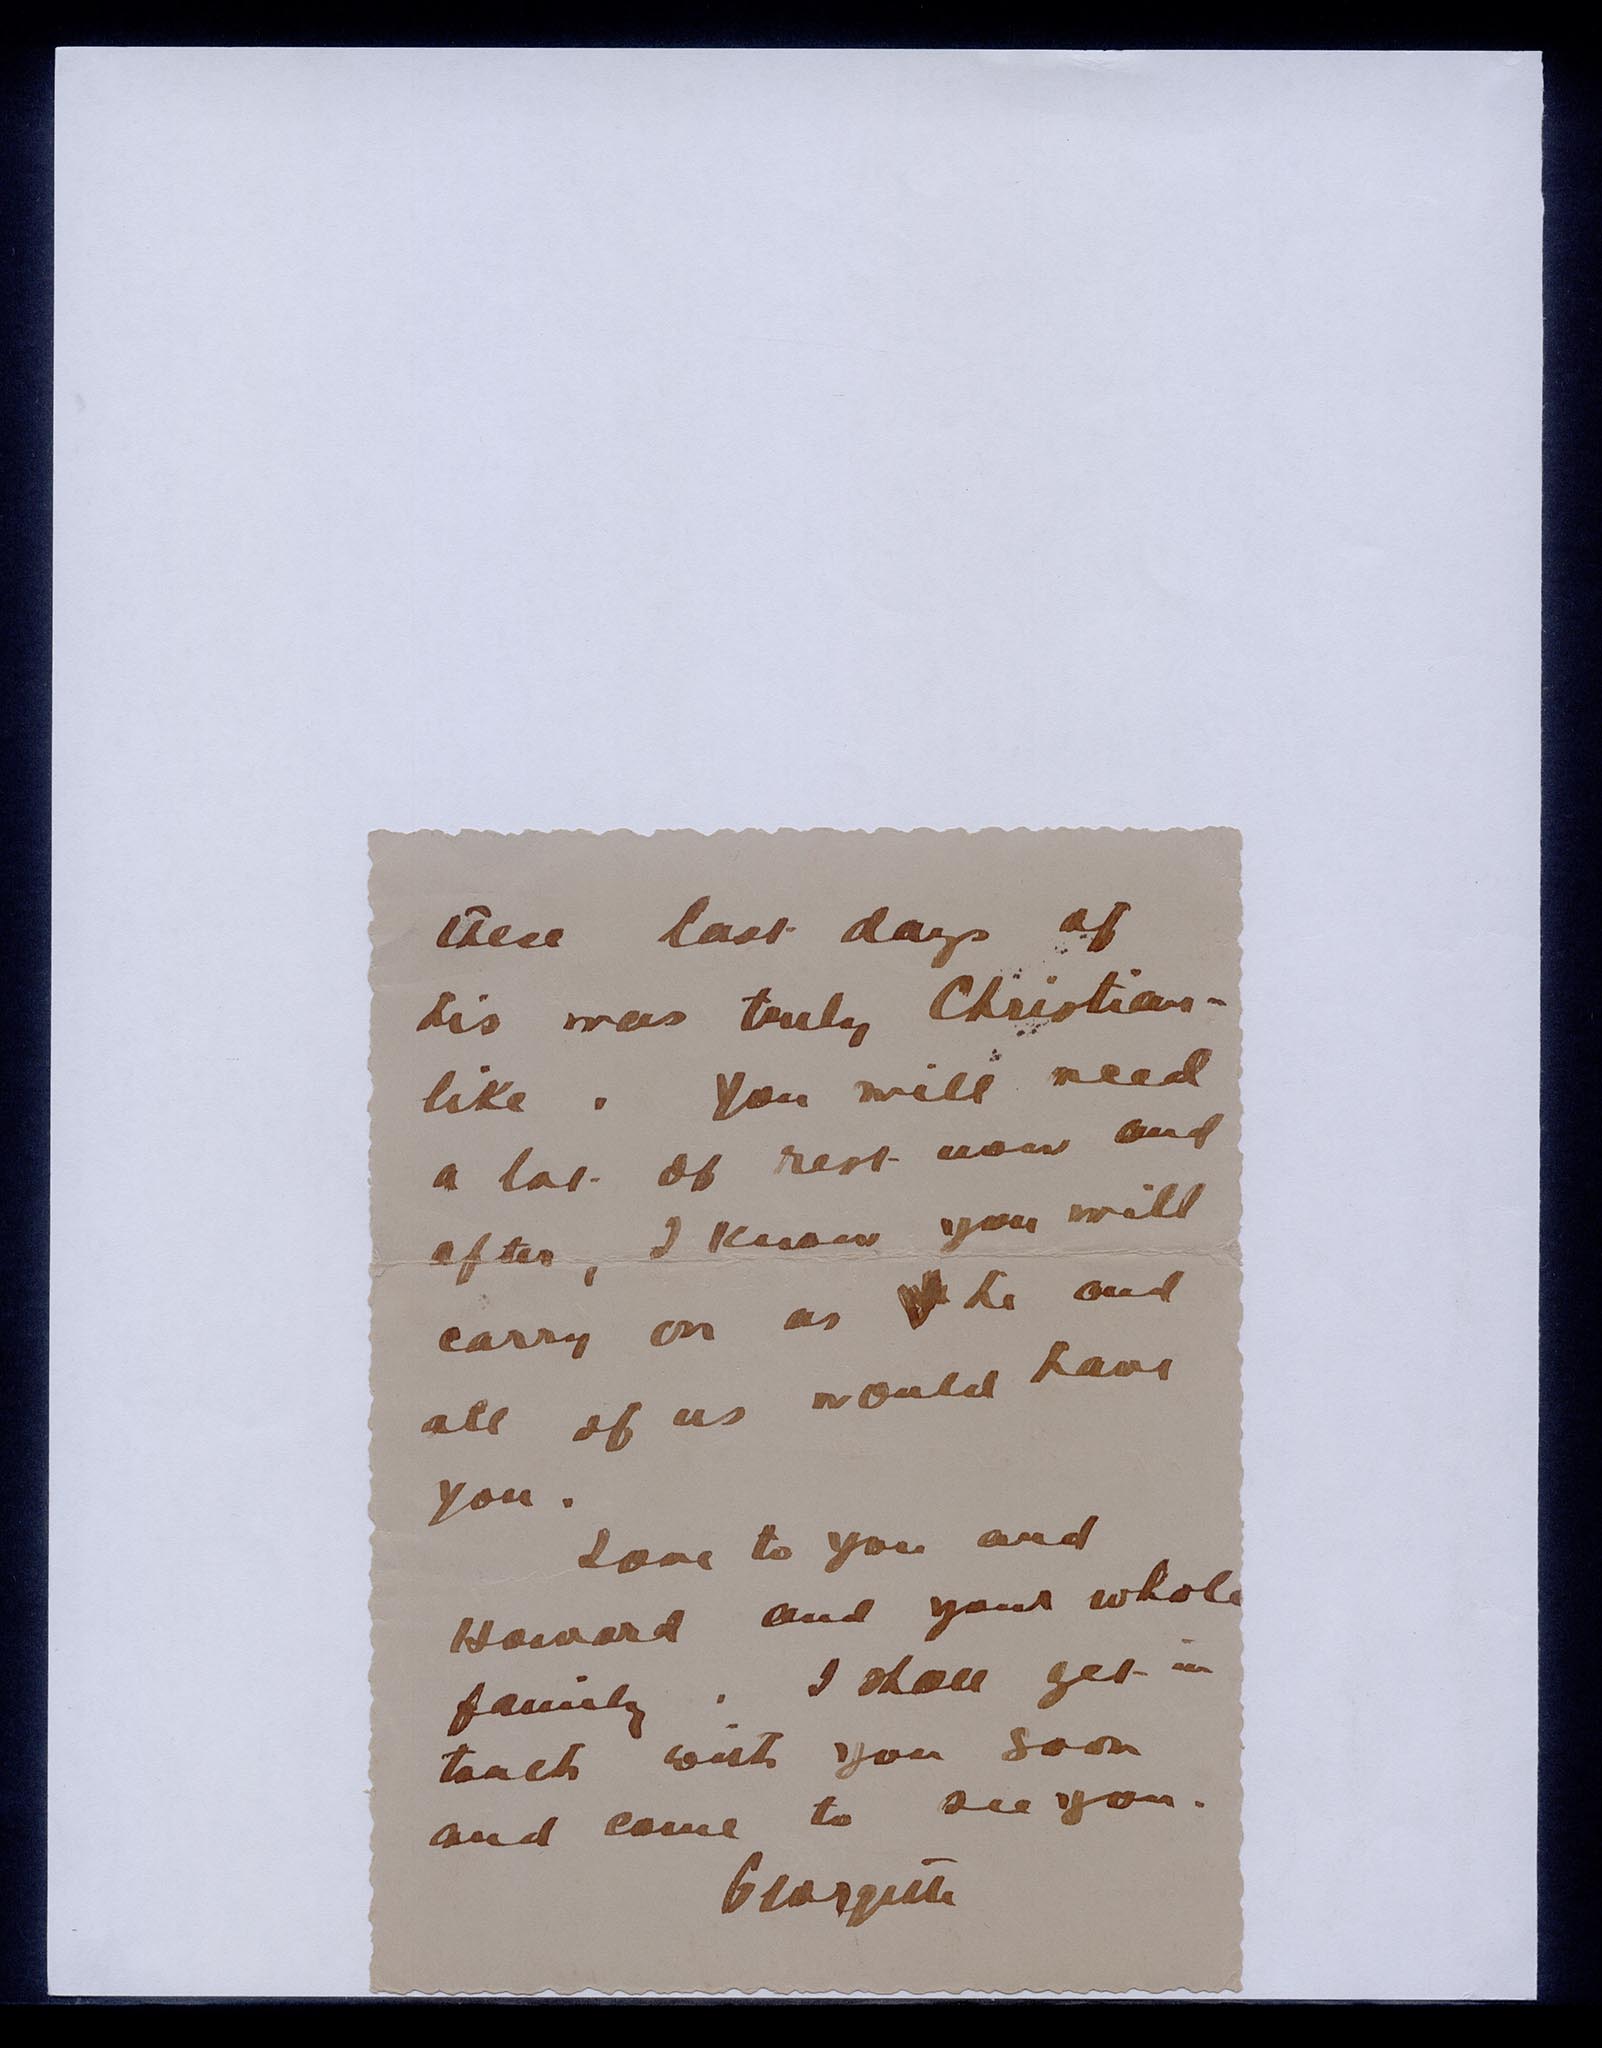 these last days of
his was truly Christian-
like. You will need
a lot of rest now and
after, I know you will
carry on as he and
all of us would have
you.
Love to you and
Howard and your whole
family. I shall get in
touch with you soon
and come to see you.
Georgette